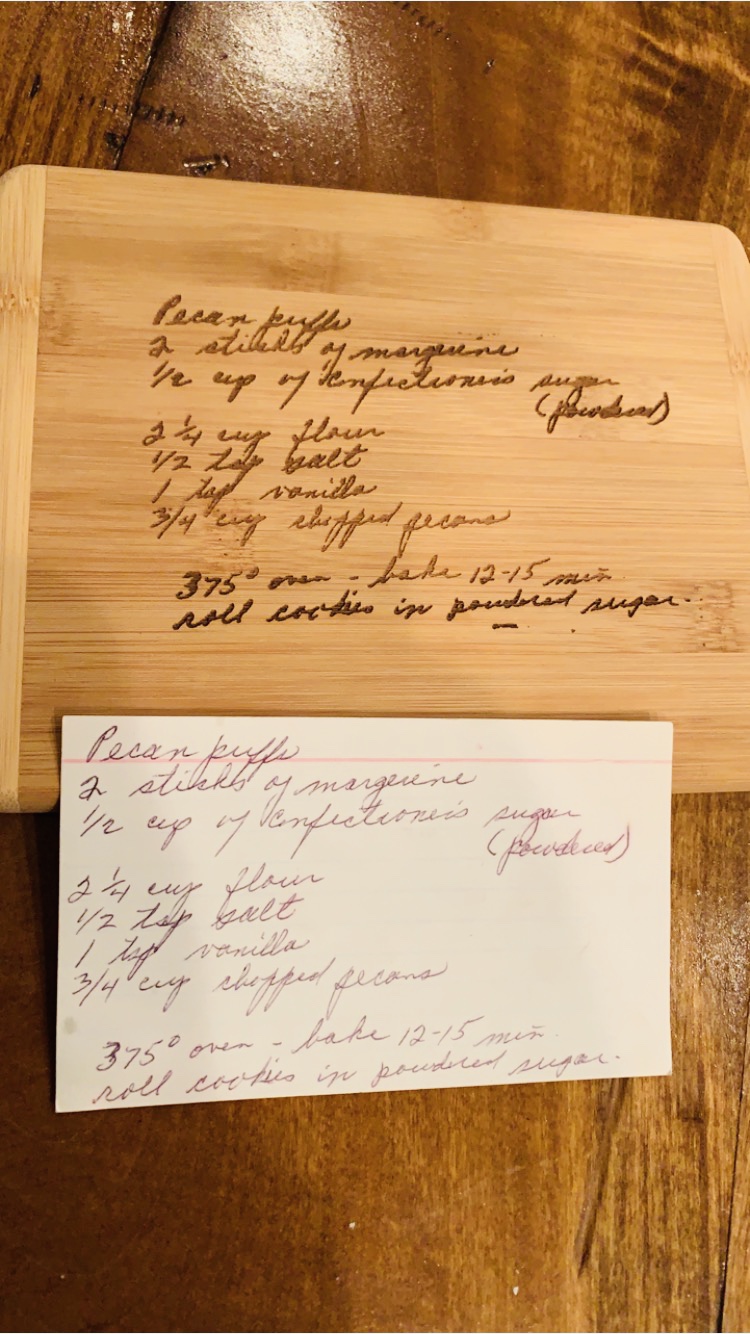 Pecan puffs
2 sticks of margerine
1/2 cup of confectioneris sugar
(powdered)
2 1/4 cup flour
1/2 tsp salt
1 tsp vanilla
3/4 cup chopped pecans
375° oven - bake 12-15 min
roll cookies in powdered sugar.
Pecan puffs
2 sticks of margerine
1/2 cup of confectioneris sugar
(powdered)
2 1/4 cup flour
1/2 tsp salt
1 tsp vanilla
3/4 cup chopped pecans
375° oven - bake 12-15 min
roll cookies in powdered sugar.